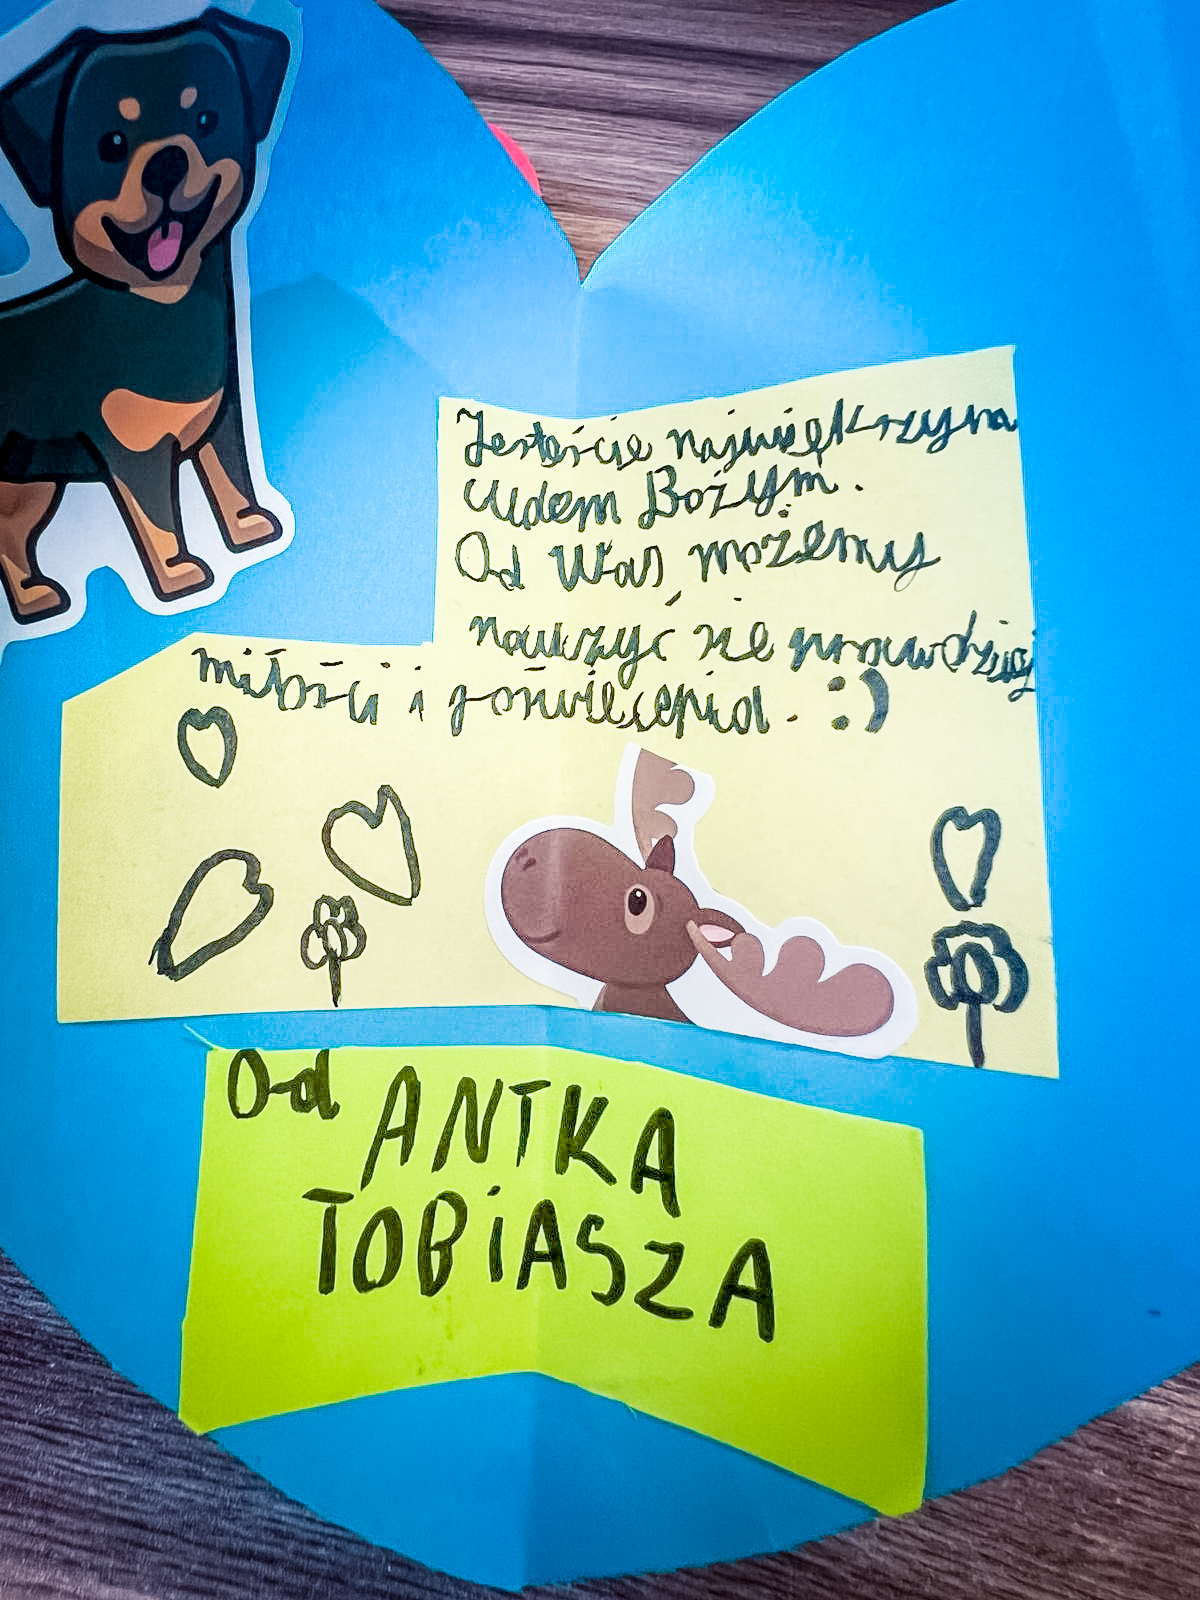 Jesteście największym
cudem Bożym.
Od Was możemy
nauczyć się prawdziwej
miłości i poświęcenia. :)
Od ANTKA
TOBIASZA